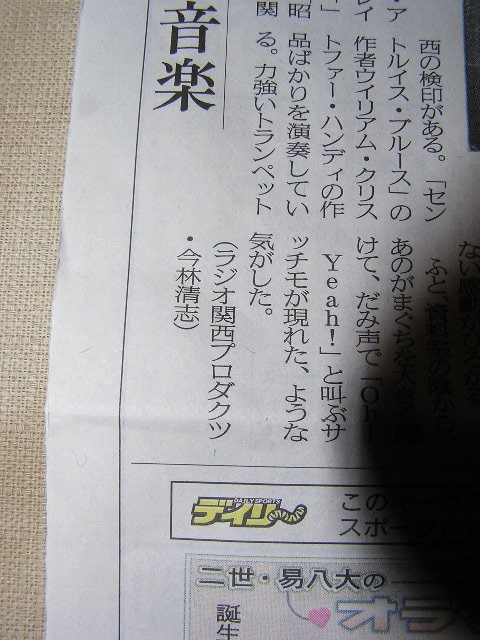 音楽
・ア
レイ
」
昭
関
西の検印がある。「セン
トルイス・ブルース」の
作者ウイリアム・クリス
トファー・ハンディの作
品ばかりを演奏してい
る。力強いトランペット
ない感動が
ふと、資料室の陰から、
あのがまぐちを大きく開
けて、だみ声で「Oh!
Yeah!」と叫ぶサ
ッチモが現れた、ような
気がした。
(ラジオ関西プロダクツ
・今林清志)
DAILY SPORTS
デイリー
この
スポー
二世・易八大の
オラ
誕生